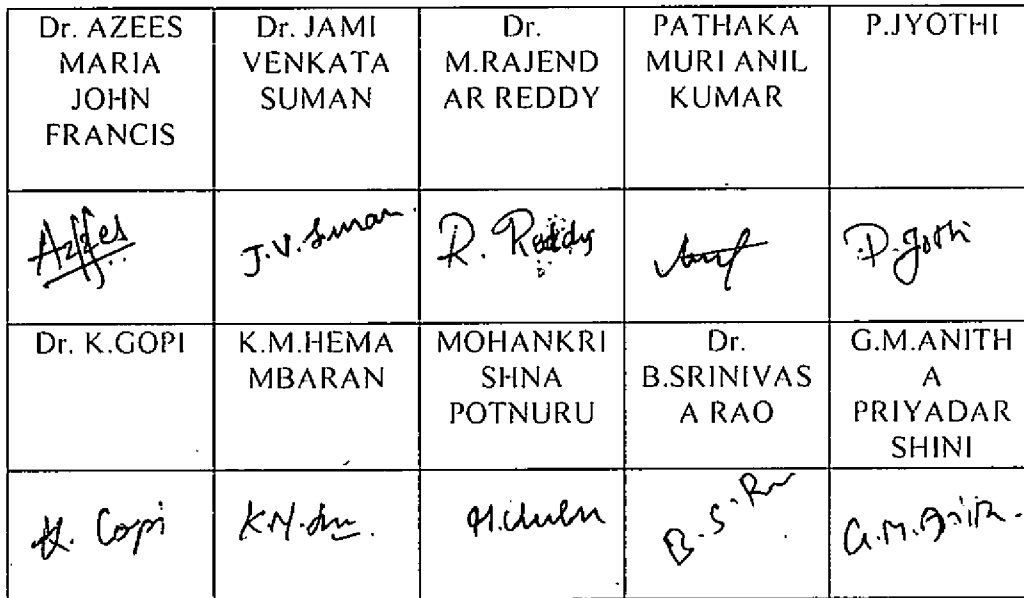 Dr. AZEES
MARIA
JOHN
FRANCIS
Dr. JAMI
VENKATA
SUMAN
Dr.
M.RAJEND
AR REDDY
PATHAKA
MURI ANIL
KUMAR
P.JYOTHI
Azees
J.V.Suman.
R. Reddy
P.Jothi
Dr. K.GOPI
K.M.HEMA
MBARAN
MOHANKRI
SHNA
POTNURU
Dr.
B.SRINIVAS
A RAO
G.M.ANITH
A
PRIYADAR
SHINI
K. Gopi
B.S.Rao
G.M.Anitha.